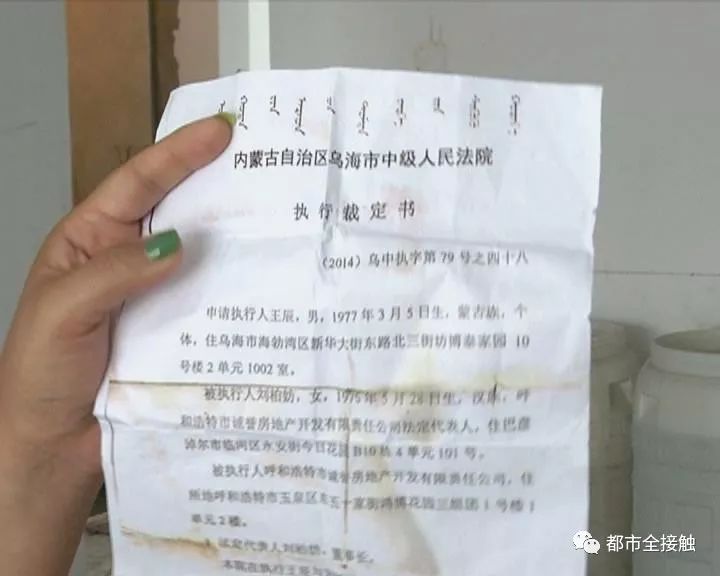 内蒙古自治区乌海市中级人民法院
执行裁定书
（2014）乌中执字第79号之四十八
申请执行人王辰，男，1977年3月5日生，蒙古族，个
体，住乌海市海勃湾区新华大街东路北三街坊博泰家园10
号楼2单元1002室。
被执行人刘柏妨，女，1975年5月28日生，汉族，呼
和浩特市诚誉房地产开发有限责任公司法定代表人，住巴彦
淖尔市临河区永安街今日花园B10栋4单元101号。
被执行人呼和浩特市诚誉房地产开发有限责任公司，住
所地呼和浩特市玉泉区五十家街鸿博花园三组团1号楼1
单元2楼。
法定代表人刘柏妨，董事长。
本院在执行王辰与
都市全接触